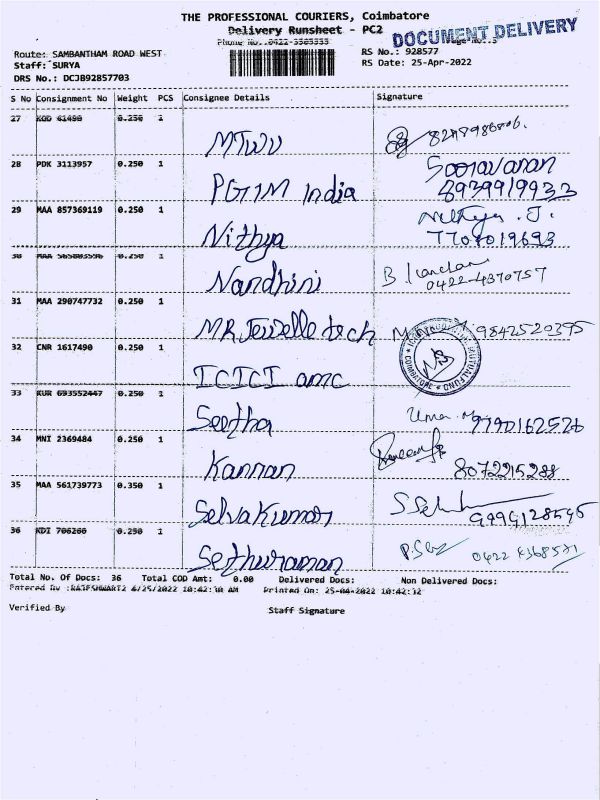 THE PROFESSIONAL COURIERS, Coimbatore
Delivery Runsheet - PC2
DOCUMENT DELIVERY
Phone No.:0422-3303333
Route: SAMBANTHAM ROAD WEST
RS No.: 928577
Staff: SURYA
RS Date: 25-Apr-2022
DRS No.: DCJB92857703
S No Consignment No Weight PCS Consignee Details Signature
27 KOD 61490 0.250 1
MTWU
28 PDK 3113957 0.250 1 Sooravanan
PGIIM India 8939919933
29 MAA 857369119 0.250 1
Nithya 7707019693
30 MAA 0.250 1
Nandhini 0422-4370757
31 MAA 290747732 0.250 1
MR Jewelle tech 9842520395
32 CNR 1617490 0.250 1
COIMBATORE
ICICI amc
33 KUR 693552447 0.250 1
Seetha Uma. M 9790162526
34 MNI 2369484 0.250 1
Kannan 8072215288
35 MAA 561739773 0.350 1
Selvakumar 9994128545
36 KDI 706260 0.250 1
Sethuraman 0422 4368571
Total No. Of Docs: 36 Total COD Amt: 0.00 Delivered Docs: Non Delivered Docs:
Entered By :RAJESHWARI2 4/25/2022 10:42:10 AM Printed On: 25-04-2022 10:42:12
Verified By Staff Signature